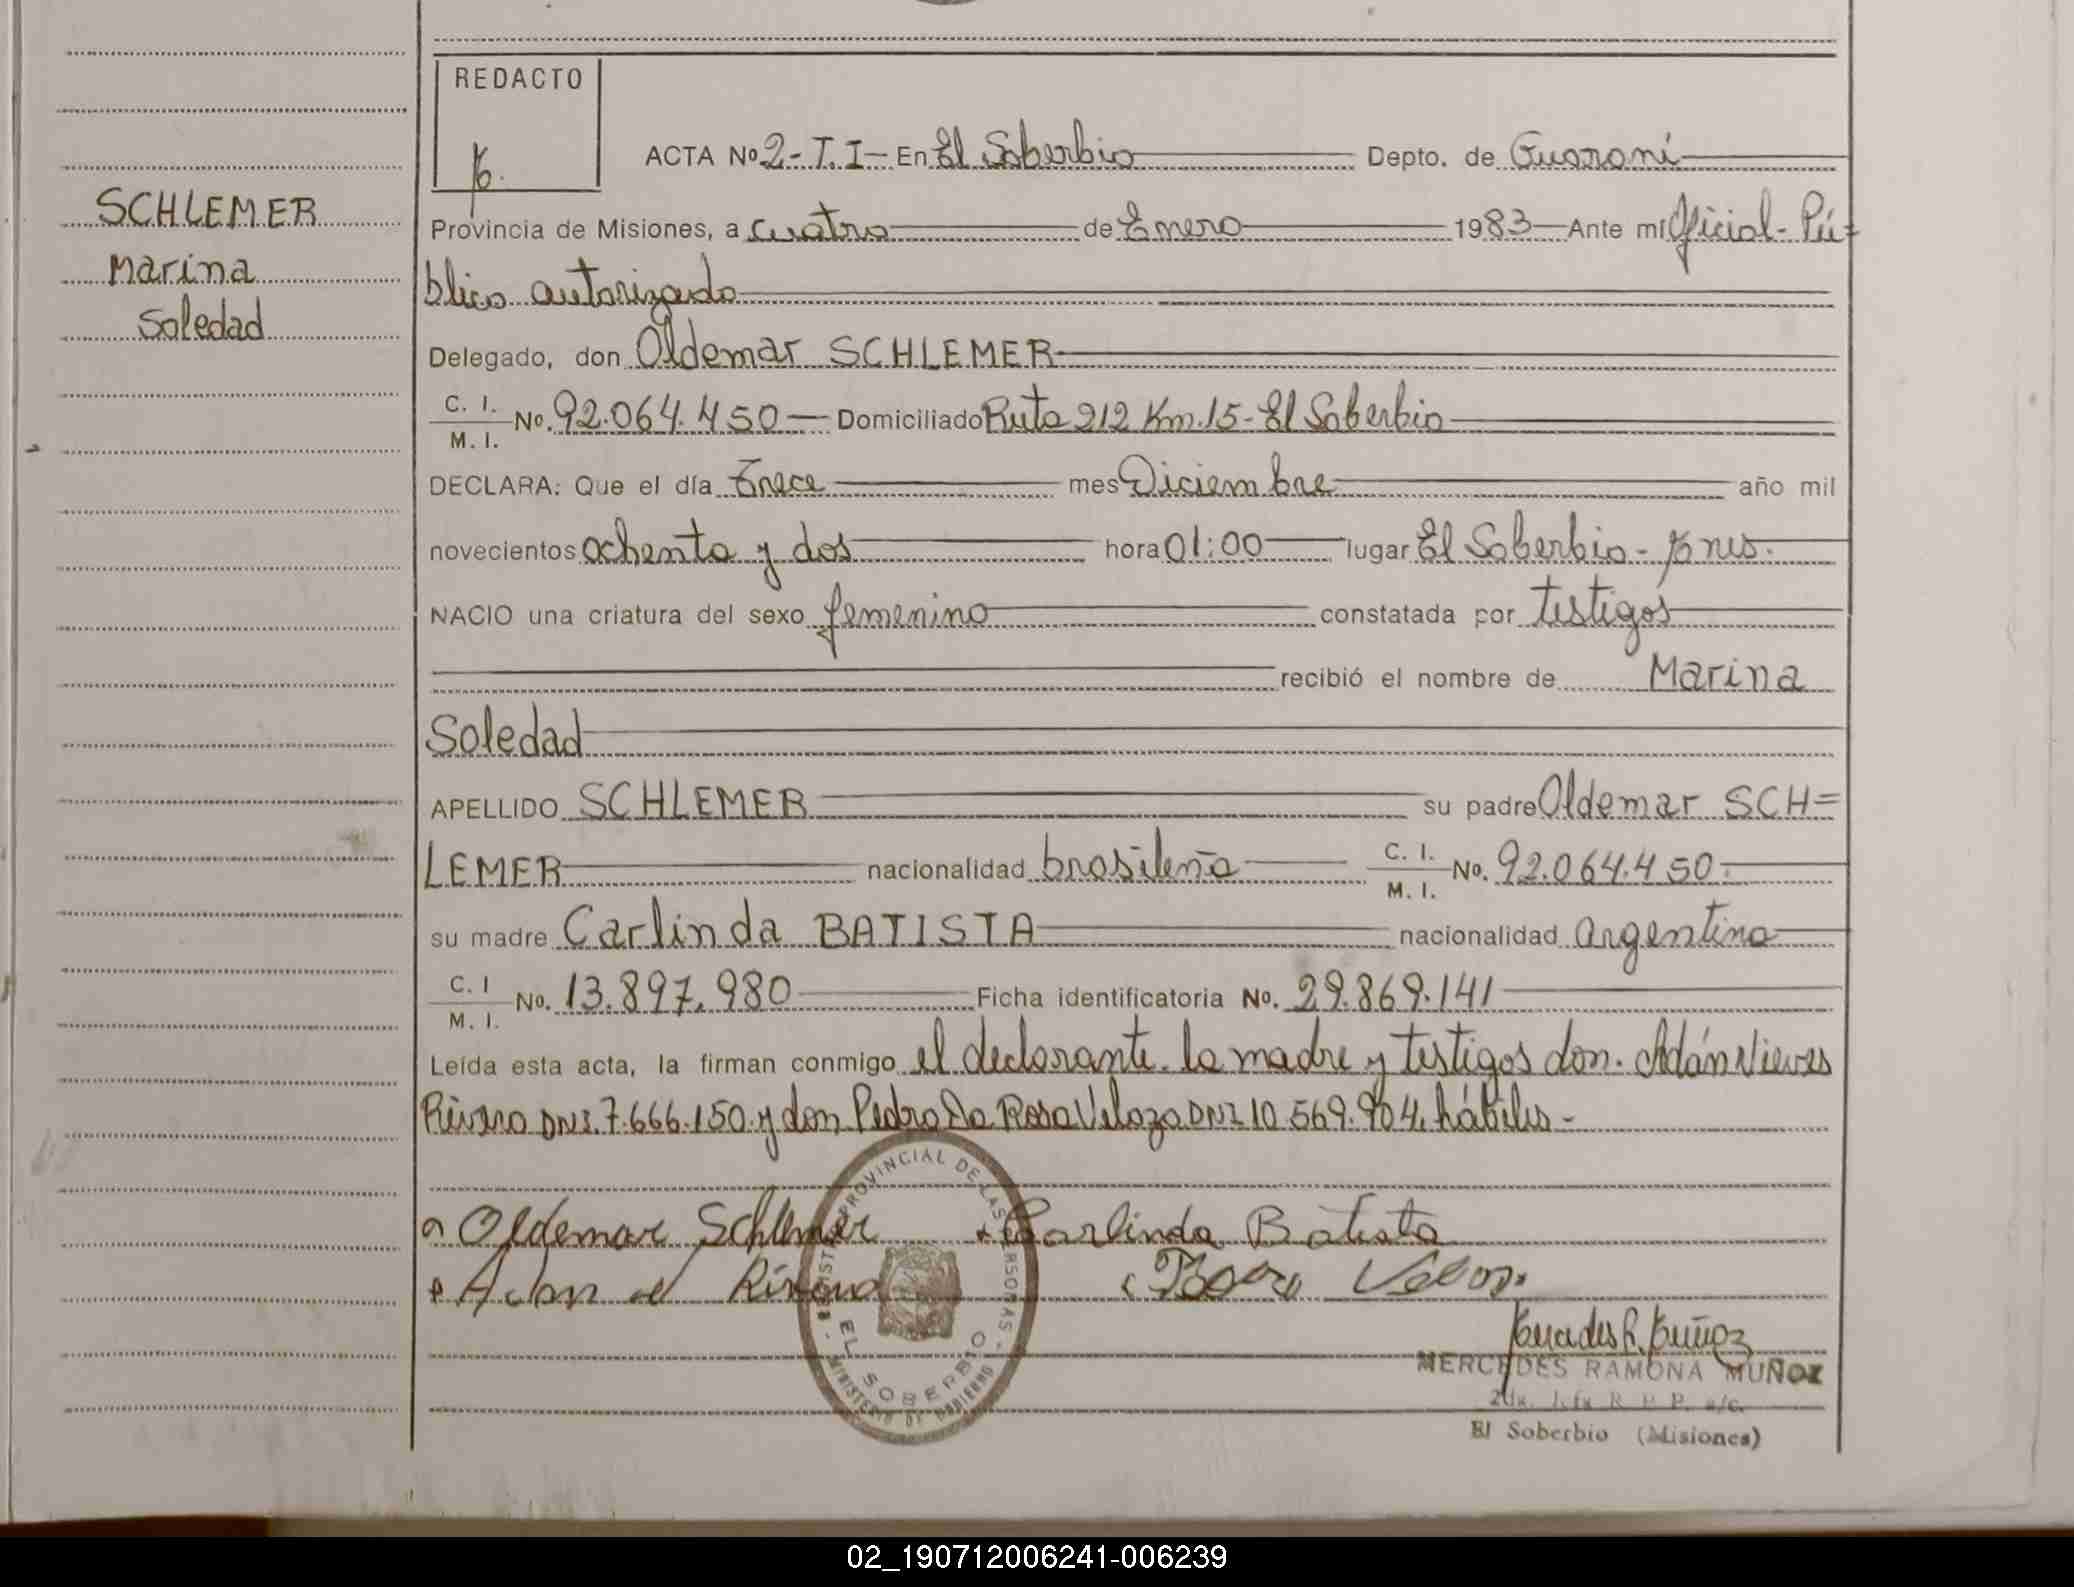 REDACTO
ACTA Nº 2-T.I- En El Soberbio Depto. de Guaraní
SCHLEMER
Marina
Soledad
Provincia de Misiones, a cuatro de Enero 1983 Ante mí Oficial-Pú-
blico autorizado
Delegado, don Oldemar SCHLEMER
C. I.
M. I. No. 92.064.450 Domiciliado Ruta 212 Km.15-El Soberbio
DECLARA: Que el día Trece mes Diciembre año mil
novecientos ochenta y dos hora 01:00 lugar El Soberbio-
NACIO una criatura del sexo femenino constatada por testigos
recibió el nombre de Marina
Soledad
APELLIDO SCHLEMER su padre Oldemar SCH=
LEMER nacionalidad brasileña C. I.
M. I. No. 92.064.450
su madre Carlinda BATISTA nacionalidad argentina
C. I
M. I. No. 13.897.980 Ficha identificatoria No. 29.869.141
Leída esta acta, la firman conmigo el declarante la madre y testigos don Adán Nieves
Rivero DNI.7.666.150 y don Pedro Da Rosa Veloza DNI 10.569.904. hábiles-
Oldemar Schlemer Carlinda Batista
REGISTRO PROVINCIAL DE LAS PERSONAS
EL SOBERBIO
MINISTERIO DE GOBIERNO
MERCEDES RAMONA MUÑOZ
El Soberbio (Misiones)
02_190712006241-006239